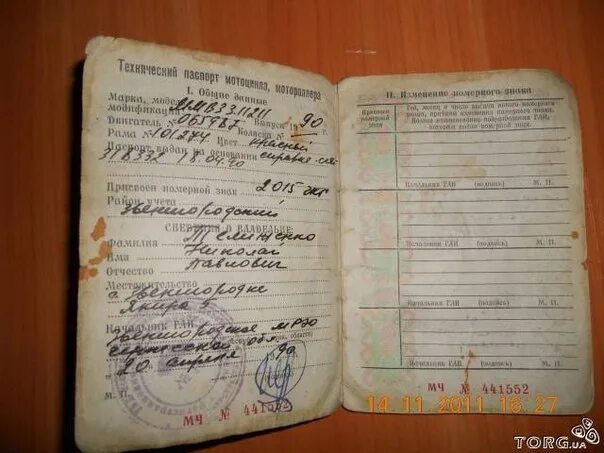 Технический паспорт мотоцикла, мотороллера
I. Общие данные
Марка, модель
модификация ММВЗ311211
Двигатель № 065987 Выпуск 19 90 г.
Рама № 101274 Коляска №
Цвет красный
Паспорт выдан на основании справке-счет
31В332 18.04.90
Присвоен номерной знак 2015
Район учета
Звенигородский
СВЕДЕНИЯ О ВЛАДЕЛЬЦЕ
Фамилия
Имя Николай
Отчество Павлович
Местожительство
Якира 5
Начальник ГАИ
МРЭО
20 апреля 1990
М. П.
МЧ № 441552
II. Изменение номерного знака
Присвоен номерной знак
Год, месяц и число выдачи нового номерного знака, причина изменения номерного знака. Полное наименование подразделения ГАИ, выдавшего новый знак
Начальник ГАИ (подпись) М. П.
Начальник ГАИ (подпись) М. П.
Начальник ГАИ (подпись) М. П.
Начальник ГАИ (подпись) М. П.
МЧ № 441552
14.11.2011 16:27
TORG.ua